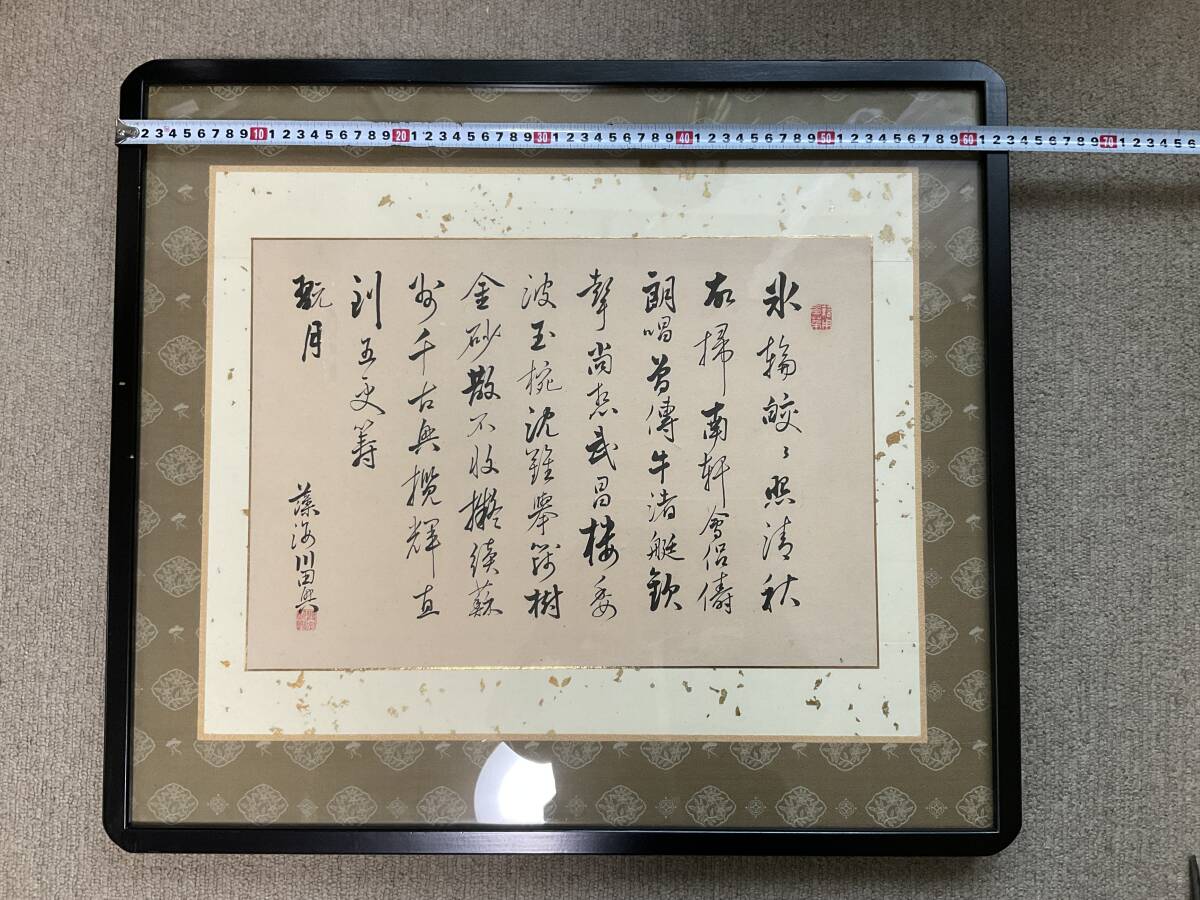 2 3 4 5 6 7 8 9 10 1 2 3 4 5 6 7 8 9 20 1 2 3 4 5 6 7 8 9 30 1 2 3 4 5 6 7 8 9 40 1 2 3 4 5 6 7 8 9 50 1 2 3 4 5 6 7 8 9 60 1 2 3 4 5 6 7 8 9 70 1 2 3 4 5 6
氷輪皎々照清秋
故掃南軒會侶儔
朗唱曽傳牛渚艇
聲尚武昌楼委
波玉椀沈難舉篩樹
金砂散不收擬續蘇
州千古興攬輝直
到五更籌
翫月
藻海川田興